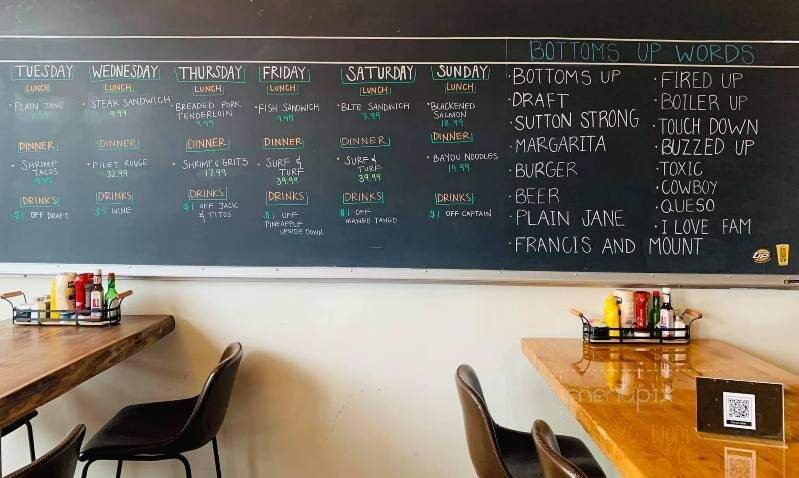 BOTTOMS UP WORDS
TUESDAY
LUNCH
· PLAIN JANE
DINNER
· SHRIMP
TACOS
9.99
DRINKS
$1 OFF DRAFT
WEDNESDAY
LUNCH
· STEAK SANDWICH
9.99
DINNER
· FILET ROUGE
32.99
DRINKS
$5 WINE
THURSDAY
LUNCH
· BREADED PORK
TENDERLOIN
DINNER
· SHRIMP & GRITS
17.99
DRINKS
$1 OFF JACK
& TITOS
FRIDAY
LUNCH
· FISH SANDWICH
9.99
DINNER
· SURF &
TURF
39.99
DRINKS
$1 OFF
PINEAPPLE
UPSIDE DOWN
SATURDAY
LUNCH
· BLTE SANDWICH
7.99
DINNER
· SURF &
TURF
39.99
DRINKS
$1 OFF
MANGO TANGO
SUNDAY
LUNCH
· BLACKENED
SALMON
18.99
DINNER
· BAYOU NOODLES
19.99
DRINKS
$1 OFF CAPTAIN
· BOTTOMS UP
· DRAFT
· SUTTON STRONG
· MARGARITA
· BURGER
· BEER
· PLAIN JANE
· FRANCIS AND MOUNT
· FIRED UP
· BOILER UP
· TOUCH DOWN
· BUZZED UP
· TOXIC
· COWBOY
· QUESO
· I LOVE FAM
menupix